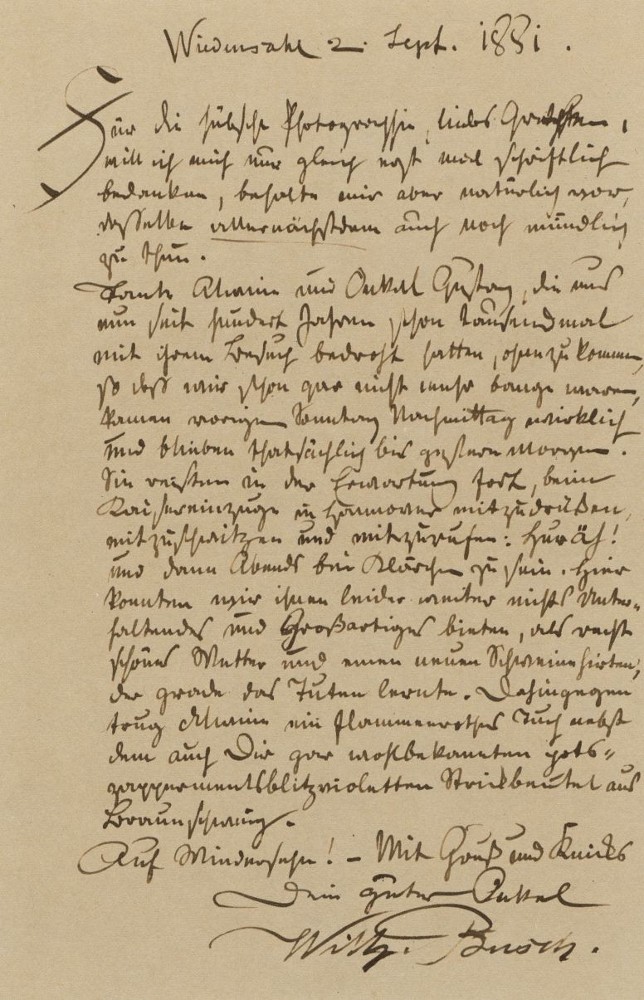 Wiedensahl 2. Sept. 1881.
Für die hübsche Photographie, liebes Gretchen,
will ich mich nur gleich erst mal schriftlich
bedanken, behalte mir aber natürlich vor,
dasselbe allernächstdem auch noch mündlich
zu thun.
Tante Alwine und Onkel Gustav, die uns
nun seit hundert Jahren schon tausendmal
mit ihrem Besuch bedroht hatten, ohne zu kommen,
so daß wir schon gar nicht mehr bange waren,
kamen vorigen Sonntag Nachmittag wirklich
und blieben thatsächlich bis gestern Morgen.
Sie reisten in der Erwartung fort, beim
Kaisereinzuge in Hannover mitzudrücken,
mitzuschwitzen und mitzurufen: Hurräh!
und dann Abends bei Klärchen zu sein. Hier
konnten wir ihnen leider weiter nichts Unter-
haltendes und Großartiges bieten, als recht
schönes Wetter und einen neuen Schweinehirten,
der grade das Tuten lernte. Dahingegen
trug Alwine ein flammenrothes Tuch nebst
dem auch Dir gar wohlbekannten potz-
zappermentsblitzvioletten Strickbeutel aus
Braunschweig.
Auf Wiedersehn! – Mit Gruß und Knicks
Dein guter Onkel
Wilh. Busch.